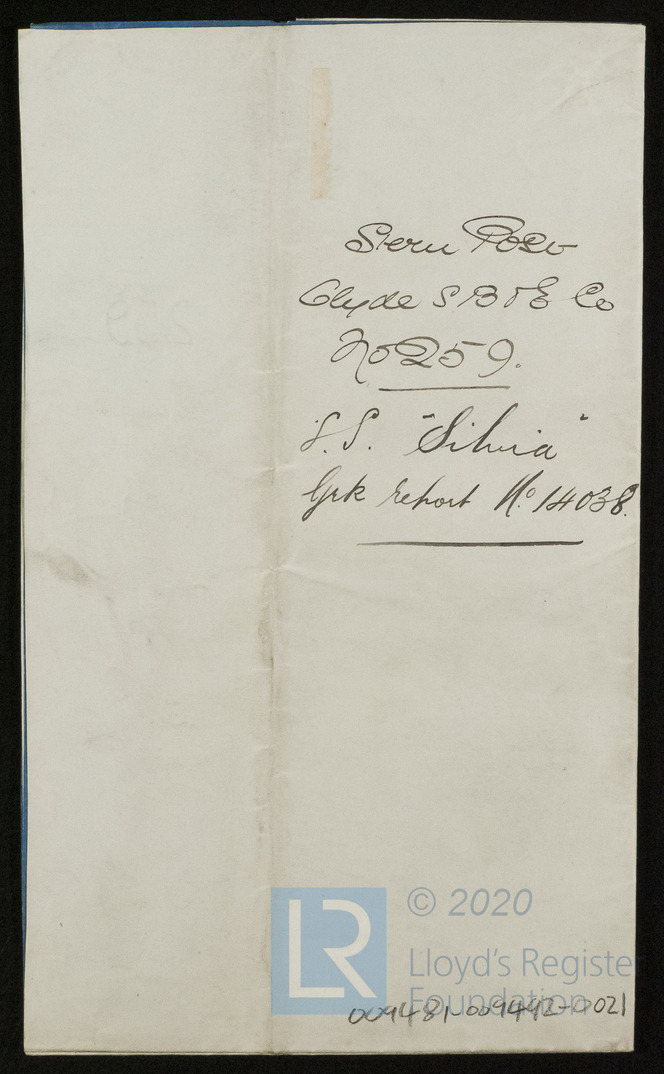 Stern Post
Clyde S B & E Co
No 259.
S.S. "Silvia"
Grk report No. 14038.
LR
© 2020
Lloyd's Register
Foundation
009481-009492-0021